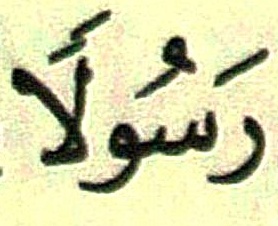 رَسُولًا